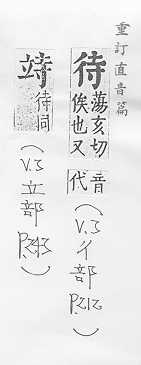 重訂直音篇
待蕩亥切俟也又音代（V.3彳部P.212）
䇃待同（V.3立部P.243）